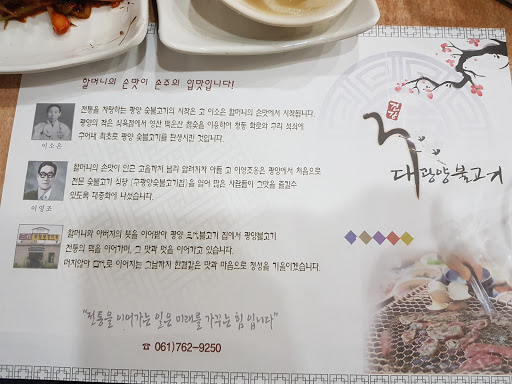 할머니의 손맛이 손주의 입맛입니다!
전통을 자랑하는 광양 숯불고기의 시작은 고 이소은 할머니의 손맛에서 시작됩니다.
광양의 작은 식육점에서 영산 백운산 참숯을 이용하여 청동 화로와 구리 석쇠에
구어내 최초로 광양 숯불고기를 탄생시킨 것입니다.
이소은
할머니의 손맛이 인근 고을까지 널리 알려지자 아들 고 이영조옹은 광양에서 처음으로
전문 숯불고기 식당 (구광양숯불고기집)을 열어 많은 사람들이 그맛을 즐길수
있도록 대중화에 나섰습니다.
이영조
할머니와 아버자의 뜻을 이어받아 광양 불고기 집에서 광양불고기
전통의 맥을 이어가며, 그 맛과 멋을 이어가고 있습니다.
머지않아 이어지는 그날까지 한결같은 맛과 마음으로 정성을 기울이겠습니다.
"전통을 이어가는 일은 미래를 가꾸는 힘 입니다"
☎ 061)762-9250
대광양불고기